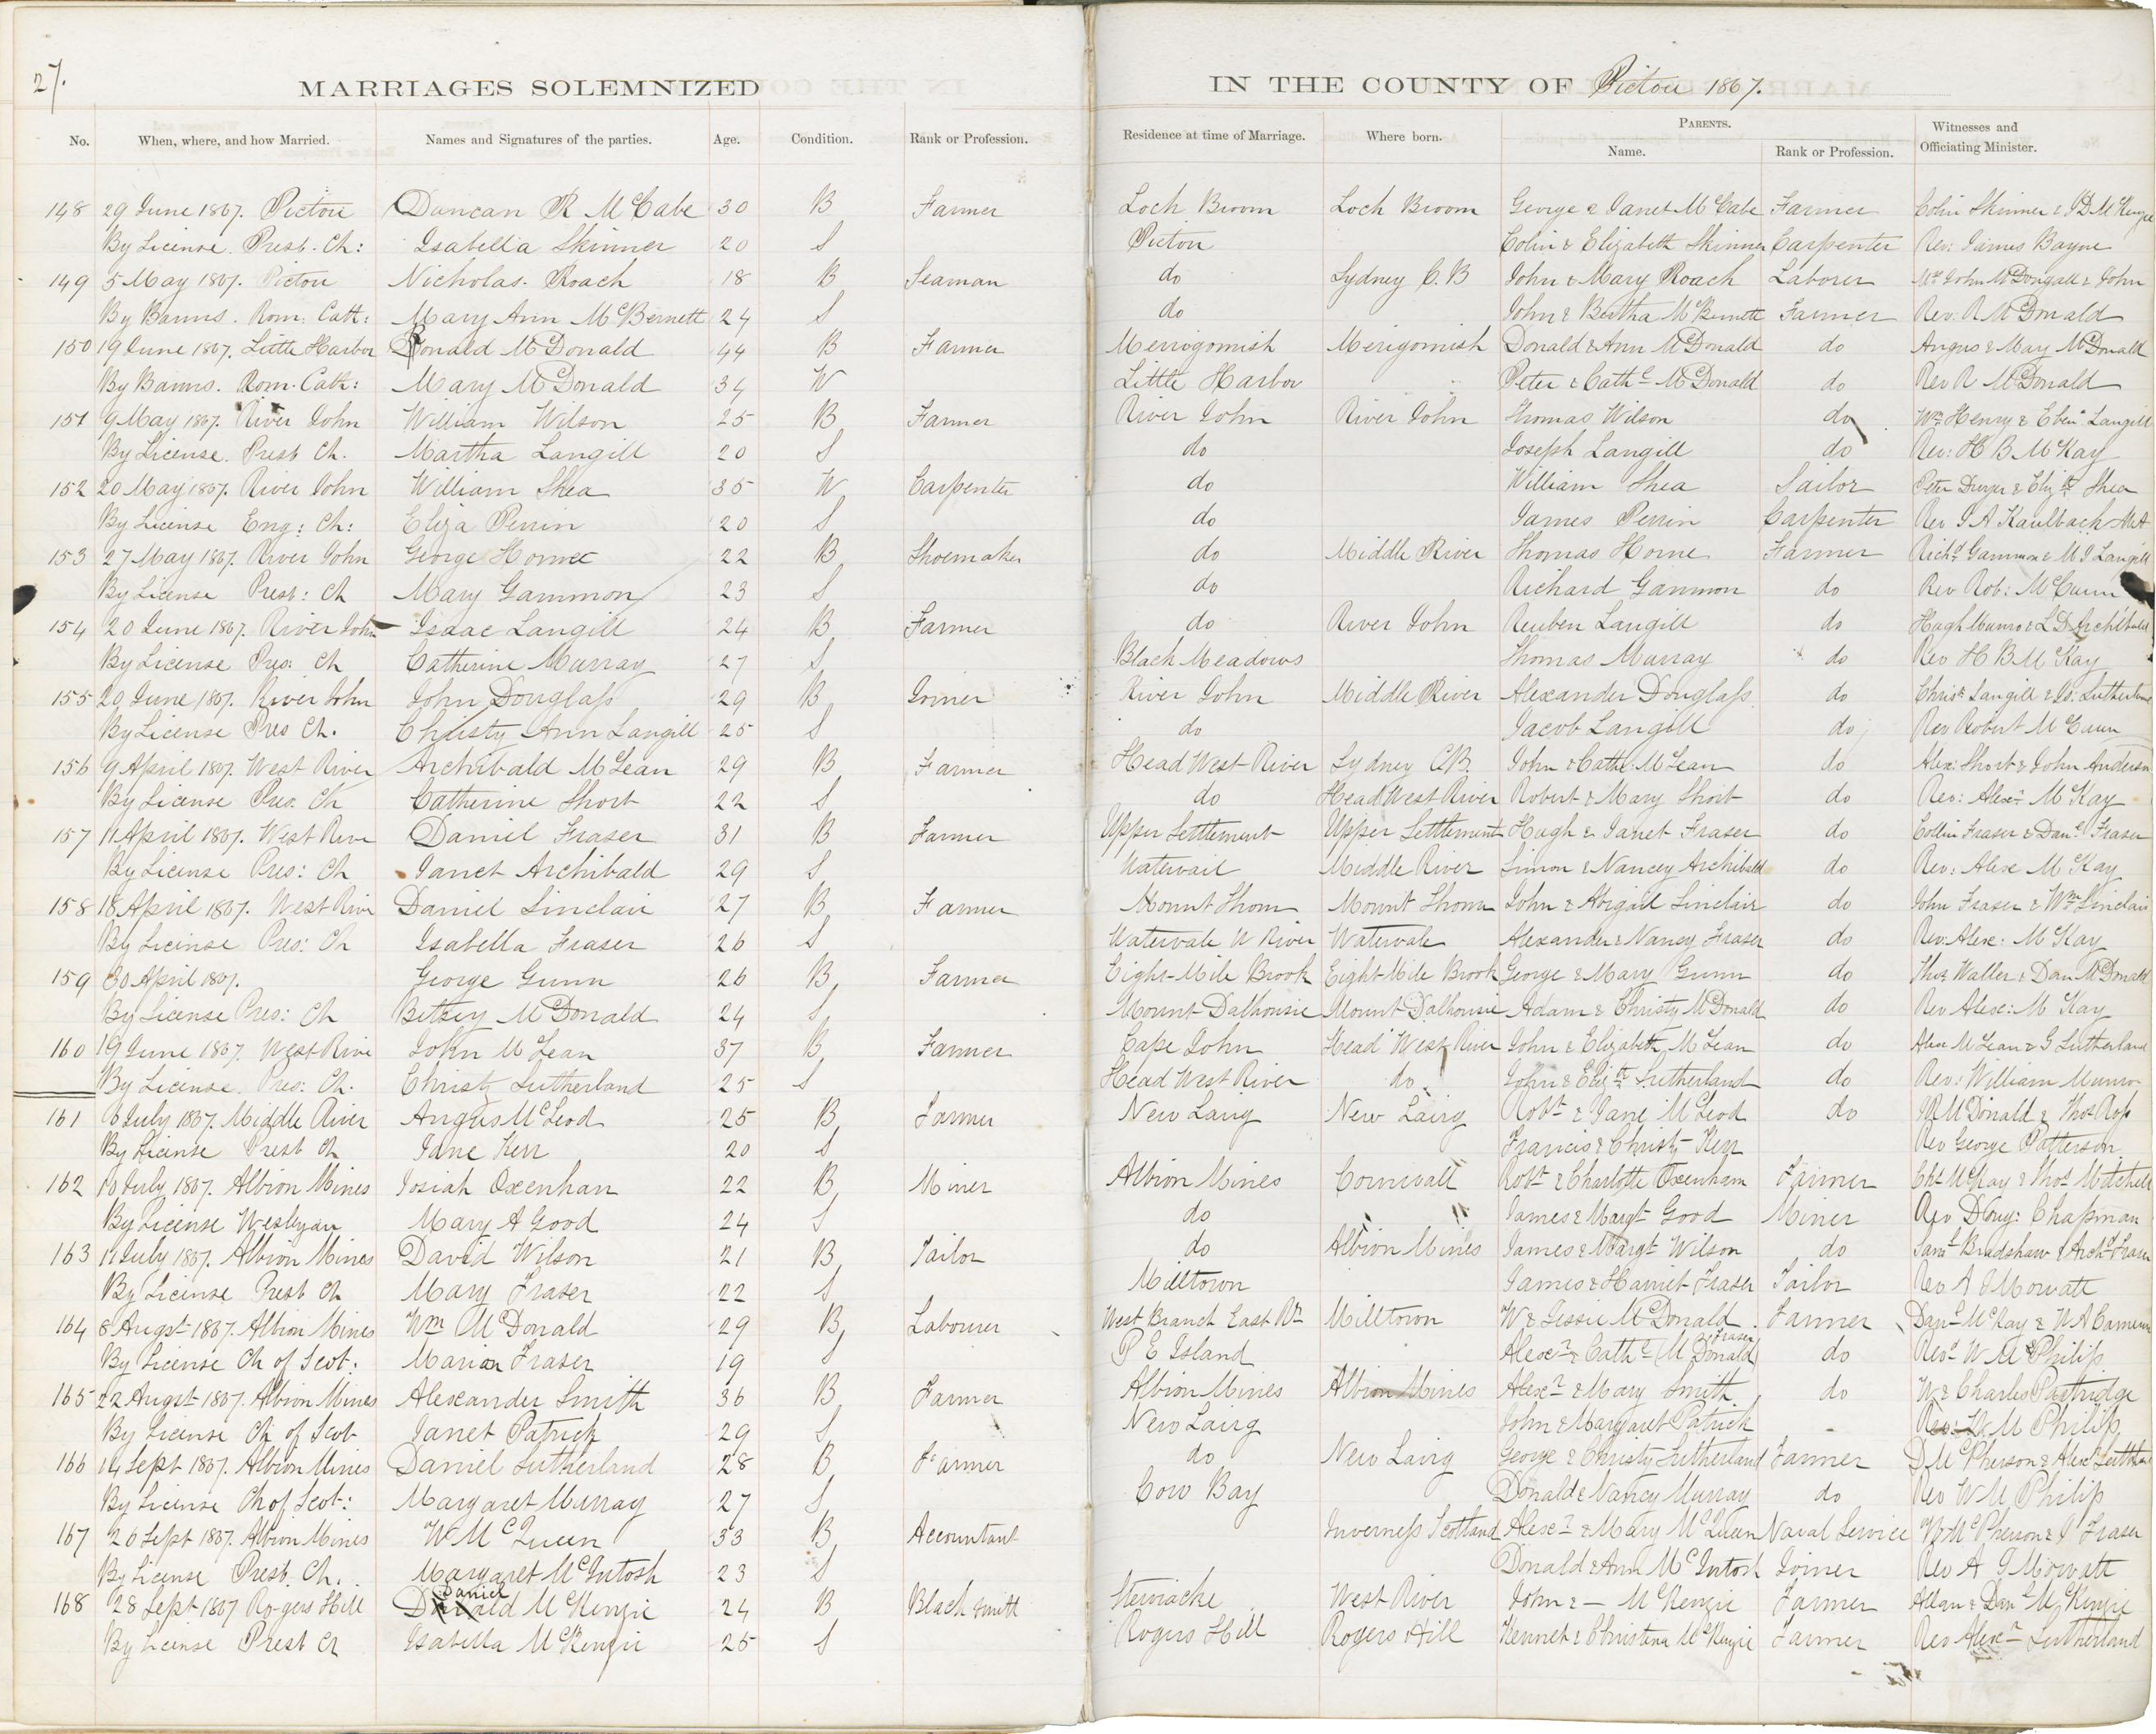 27.
MARRIAGES SOLEMNIZED IN THE COUNTY OF Pictou 1867.
No. When, where, and how Married. Names and Signatures of the parties. Age. Condition. Rank or Profession. Residence at time of Marriage. Where born. PARENTS. Name. Rank or Profession. Witnesses and Officiating Minister.
148 29 June 1867. Pictou Duncan R McCabe 30 B Farmer Loch Broom Loch Broom George & Janet McCabe Farmer Colin Skinner & J D McKenzie
By License. Presb. Ch: Isabella Skinner 20 S Pictou Colin & Elizabeth Skinner Carpenter Rev: James Bayne
149 5 May 1867. Pictou Nicholas Roach 18 B Seaman do Sydney C.B John & Mary Roach Laborer John McDougall & John
By Banns. Rom: Cath: Mary Ann McBernett 24 S do John & Bertha McBernett Farmer Rev: R McDonald
150 19 June 1867. Little Harbor Ronald McDonald 44 B Farmer Merrigomish Merigomish Donald & Ann McDonald do Angus & Mary McDonald
By Banns. Rom. Cath: Mary McDonald 34 W Little Harbor Peter & Cathe McDonald do Rev R McDonald
151 9 May 1867. River John William Wilson 25 B Farmer River John River John Thomas Wilson do Wm Henry & Ebenr Langill
By License. Presb Ch. Martha Langill 20 S do Joseph Langill do Rev: H B McKay
152 20 May 1867. River John William Shea 35 W Carpenter do William Shea Sailor Peter Dwyer & Elizth Shea
By License Eng: Ch: Eliza Perrin 20 S do James Perrin Carpenter Rev J A Kaulbach MA
153 27 May 1867. River John George Horne 22 B Shoemaker do Middle River Thomas Horne Farmer Richd Gammon & M J Langill
By License Prest: Ch Mary Gammon 23 S do Richard Gammon do Rev Rob: McCunn
154 20 June 1867. River John Isaac Langill 24 B Farmer do River John Reuben Langill do Hugh Munro & L D Archibald
By License Pres: Ch Catherine Murray 27 S Black Meadows Thomas Murray do Rev H B McKay
155 20 June 1867. River John John Douglass 29 B Joiner River John Middle River Alexander Douglass do Christr Langill & Sutherland
By License Pres Ch. Christy Ann Langill 25 S do Jacob Langill do Rev Robert McCunn
156 9 April 1867. West River Archibald McLean 29 B Farmer Head West River Sydney C.B. John & Cathe McLean do Alex: Short & John Anderson
By License Pres: Ch Catherine Short 22 S do Head West River Robert & Mary Short do Rev: Alexr McKay
157 11 April 1867. West River Daniel Fraser 31 B Farmer Upper Settlement Upper Settlement Hugh & Janet Fraser do Collin Fraser & Danl Fraser
By License Pres: Ch Janet Archibald 29 S Watervail Middle River Simon & Nancey Archibald do Rev: Alex McKay
158 18 April 1867. West River Daniel Sinclair 27 B Farmer Mount Thom Mount Thom John & Abigail Sinclair do John Fraser & Wm Sinclair
By License Pres: Ch Isabella Fraser 26 S Watervale W River Watervale Alexander & Nancy Fraser do Rev: Alex: McKay
159 30 April 1867. George Gunn 26 B Farmer Eight-Mile Brook Eight-Mile Brook George & Mary Gunn do Thos Waller & Dan McDonald
By License Pres: Ch Betsey McDonald 24 S Mount Dalhousie Mount Dalhousie Adam & Christy McDonald do Rev Alex: McKay
160 19 June 1867. West River John McLean 37 B Farmer Cape John Head West River John & Elizabeth McLean do Alex McLean & G Sutherland
By License. Pres: Ch. Christy Sutherland 25 S Head West River do. John & Elizth Sutherland do Rev: William Munro
161 6 July 1867. Middle River Angus McLeod 25 B Farmer New Larig New Lairg Robt & Jane McLeod do McDonald & Thos Ross
By License Presb Ch Jane Kerr 20 S Francis & Christy Kerr Rev George Patterson
162 10 July 1867. Albion Mines Josiah Oxenham 22 B Miner Albion Mines Cornwall Robt & Charlotte Oxenham Farmer McKay & Thos Mitchell
By License Wesleyan Mary A Good 24 S do James & Margt Good Miner Rev Doug: Chapman
163 11 July 1867. Albion Mines David Wilson 21 B Tailor do Albion Mines James & Margt Wilson do Saml Bradshaw & Archd Fraser
By License Prest Ch Mary Fraser 22 S Milltown James & Harriet Fraser Tailor Rev A J Mowatt
164 8 Augst 1867. Albion Mines Wm McDonald 29 B Labourer West Branch East Rr Milltown W & Jessie McDonald Farmer Danl McKay & W A Cameron
By License Ch of Scot: Marion Fraser 19 S P E Island Alexr & Cathe (McDonald) Fraser do Revd W M Philip
165 22 Augst 1867. Albion Mines Alexander Smith 36 B Farmer Albion Mines Albion Mines Alexr & Mary Smith do W & Charles Partridge
By License Ch of Scot Janet Patrick 29 S New Lairg John & Margaret Patrick Rev: W M Philip
166 14 Sept 1867. Albion Mines Daniel Sutherland 28 B Farmer do New Lairg George & Christy Sutherland Farmer D McPherson & Alex Sutherland
By License Ch of Scot: Margaret Murray 27 S Cow Bay Donald & Nancy Murray do Rev W M Philip
167 26 Sept 1867. Albion Mines W McQueen 33 B Accountant Inverness Scotland Alexr & Mary McQueen Naval Service W McPherson & J Fraser
By License Presb. Ch. Margaret McIntosh 23 S Donald & Ann McIntosh Joiner Rev A J Mowatt
168 28 Sept 1867 Rogers Hill Daniel McKenzie 24 B Black smith Stewiacke West River John & — McKenzie Farmer Allan & Danl McKenzie
By License Prest Ch Isabella McKenzie 25 S Rogers Hill Rogers Hill Kennet & Christena McKenzie Farmer Rev Alexr Sutherland